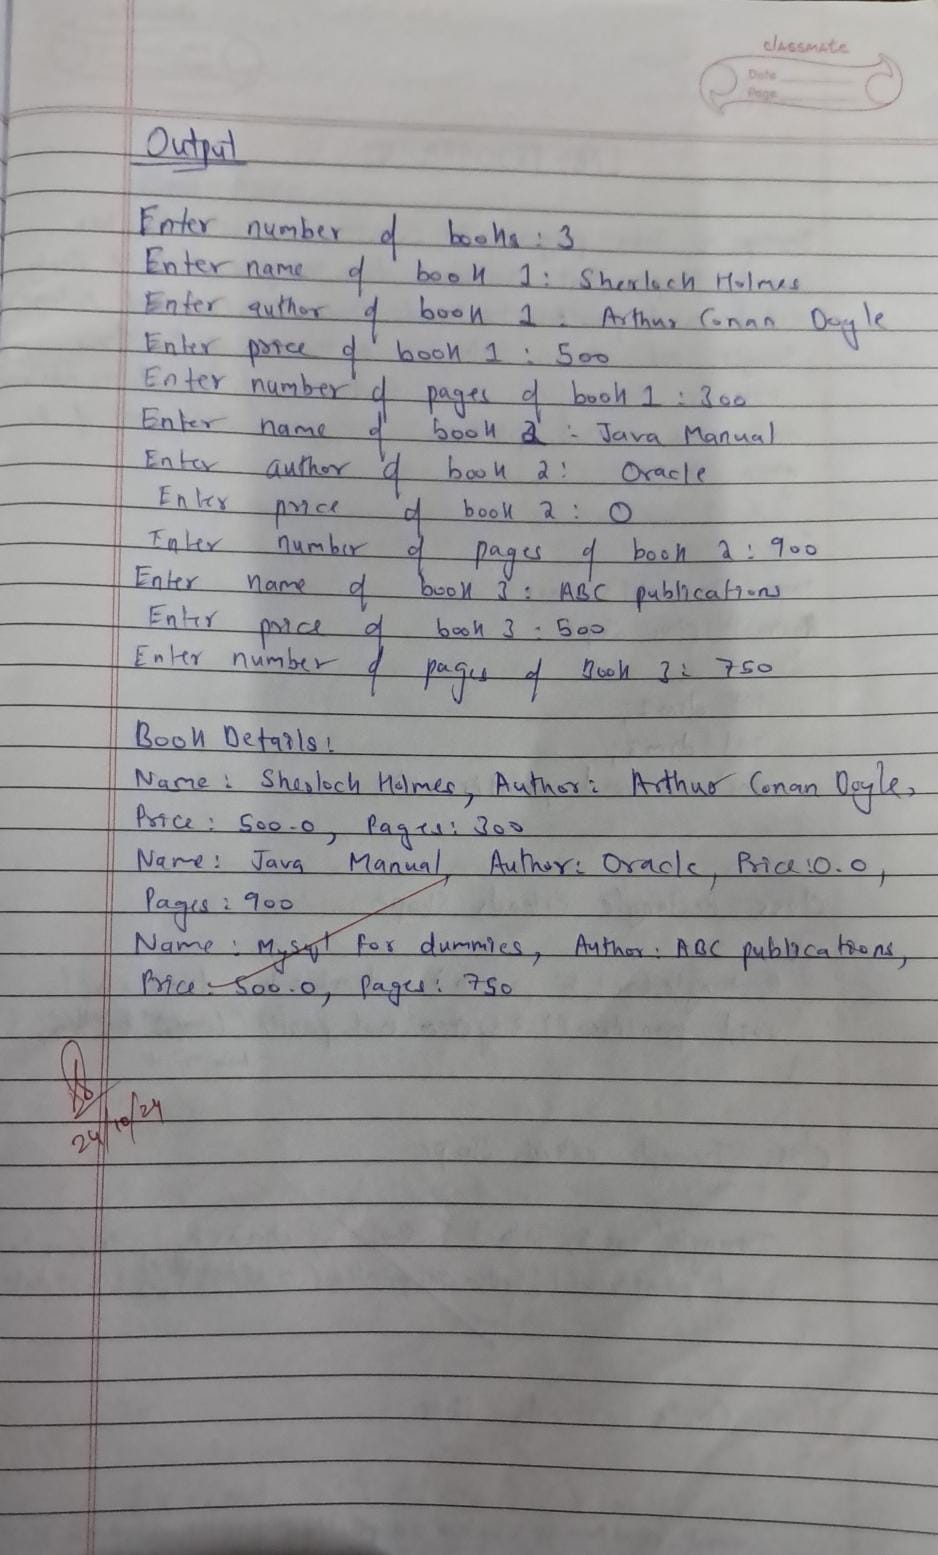 classmate
Date
Page
Output
Enter number of books : 3
Enter name of book 1 : Sherlock Holmes
Enter author of book 1 : Arthur Conan Doyle
Enter price of book 1 : 500
Enter number of pages of book 1 : 300
Enter name of book 2 : Java Manual
Enter author of book 2 : Oracle
Enter price of book 2 : 0
Enter number of pages of book 2 : 900
Enter name of book 3 : ABC publications
Enter price of book 3 : 500
Enter number of pages of Book 3 : 750
Book Details :
Name : Sherlock Holmes, Author : Arthur Conan Doyle,
Price : 500.0, Pages : 300
Name : Java Manual, Author : Oracle, Price : 0.0,
Pages : 900
Name : Mysql for dummies, Author : ABC publications,
Price : 500.0, Pages : 750
24/10/24